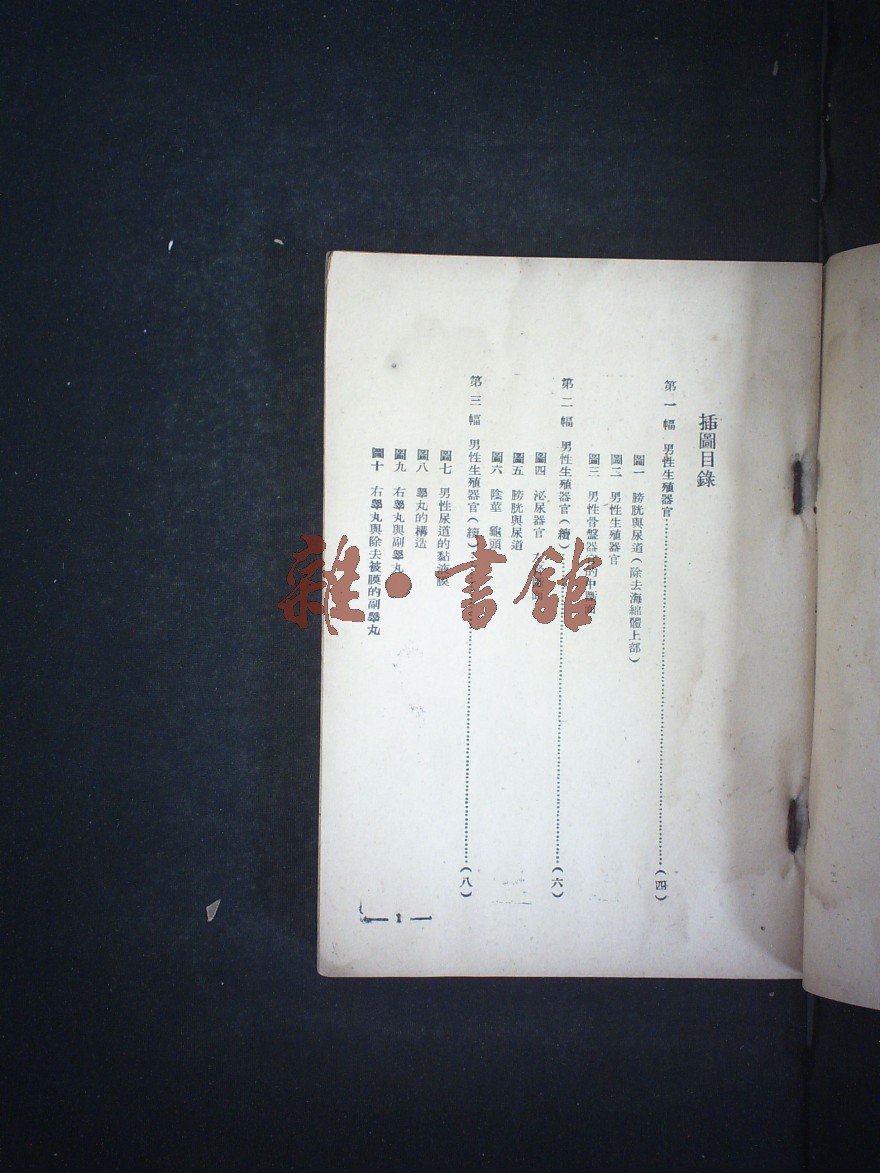 插圖目錄
第一幅 男性生殖器官……(四)
圖一 膀胱與尿道(除去海綿體上部)
圖二 男性生殖器官
圖三 男性骨盤器官的中斷面
第二幅 男性生殖器官(續)……(六)
圖四 泌尿器官
圖五 膀胱與尿道
圖六 陰莖 龜頭
第三幅 男性生殖器官(續)……(八)
圖七 男性尿道的黏液膜
圖八 睾丸的構造
圖九 右睾丸與副睾丸
圖十 右睾丸與除去被膜的副睾丸
1
雜·書館